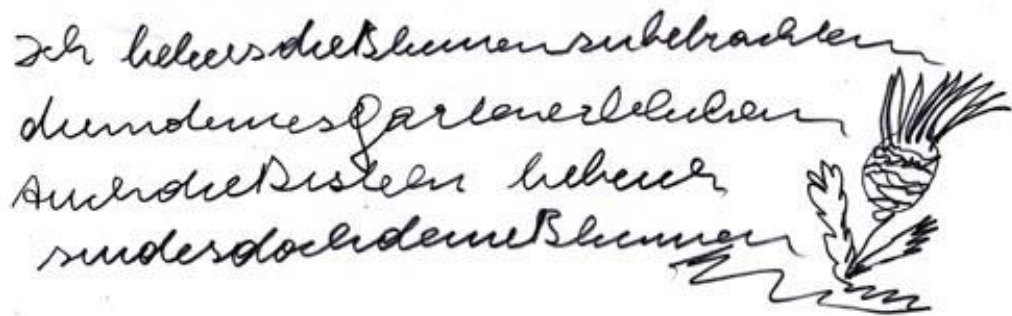 Ich liebe es die Blumen zu betrachten
die in deines Garten erblühen
Auch die Disteln liebe ich
sind es doch deine Blumen